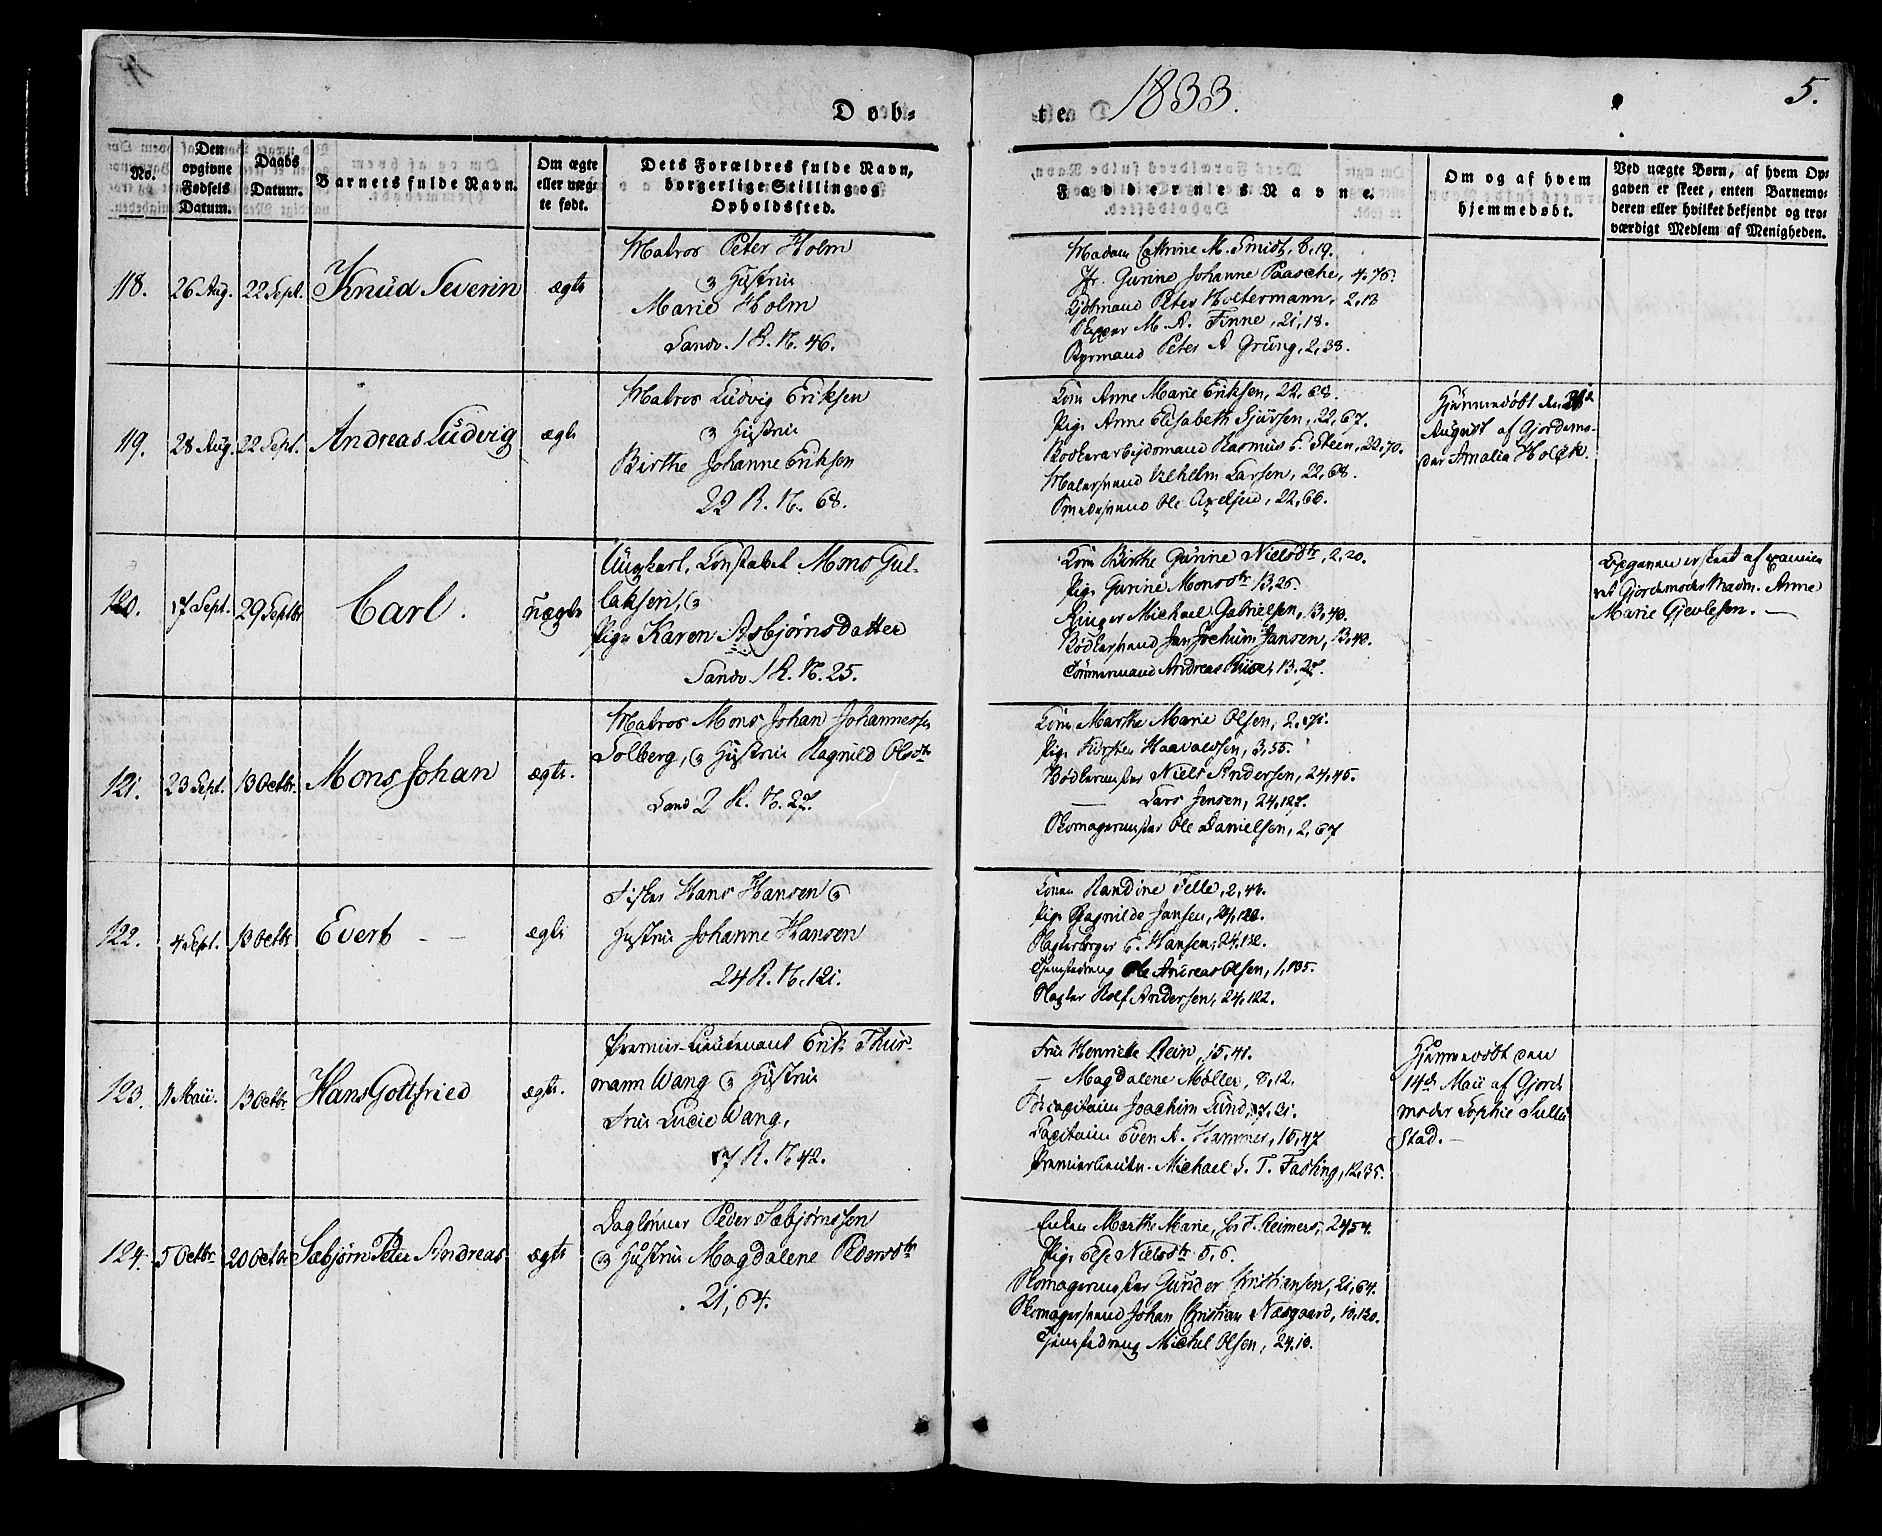 Døb-
No.
Den
opgivne
Fødsels
Datum.
Daabs
Datum.
Barnets fulde Navn.
Om ægte
eller uæg-
te født.
Dets Forældres fulde Navn,
borgerlige Stilling og
Opholdssted.
118.
26 Aug.
22 Sept.
Knud Severin
ægte
Matros Peter Holm
& Hustrue
Marie Holm
Sandv. 1 R. N. 46.
119.
28 Aug.
22 Sept.
Andreas Ludvig
ægte
Matros Ludvig Eriksen
& Hustrue
Birthe Johanne Eriksen
22 R. N. 68.
120.
17 Sept.
29 Septbr
Carl.
uægte
Ungkarl, Constabel Mons Gul-
laksen, &
Pige Karen Asbjørnsdatter
Sandv. 1 R. N. 25.
121.
23 Sept.
13 Octbr.
Mons Johan
ægte.
Matros Mons Johan Johannessen
Solberg, & Hustrue Ragnild Olsdtr
Sandv 2 R. N. 27.
122.
4 Sept.
13 Octbr
Evert
ægte
Fisker Hans Hansen &
Hustrue Johanne Hansen
24 R. N. 121.
123.
11 Maii.
13 Octbr.
Hans Gottfried
ægte.
Premier-Lieutenant Erik Thur-
mann Wang & Hustrue
Frue Lucie Wang,
17 R. N. 42.
124.
5 Octbr.
20 Octbr
Sæbjørn Peter Andreas
ægte
Dagløner Peder Sæbjørnssen
& Hustrue Magdalene Pedersdtr
21, 64.
te
1833.
5.
Faddernes Navne.
Om og af hvem
hjemmedøbt.
Ved uægte Børn, af hvem Op-
gaven er skeet, enten Barnemo-
deren eller hvilket bekjendt og tro-
værdigt Medlem af Menigheden.
Madam Cathrine M. Smidt, 8,19.
Jfr. Gurine Johanne Paasche, 4.76.
Peter Holtermann, 2,13
Skipper M. A. Finne, 21,18.
Styrmand Peter A Grung, 2,38.
Kone Anne Marie Eriksen, 22,68.
Pige Anne Elisabeth Sjursen, 22,67.
Rasmus E. Steen, 22,70.
Malersvend Vilhelm Larsen, 22,68.
Smedesvend Ole Axelsen, 22,66.
Hjemmedøbt den
August af Gjordemo-
der Amalia Holck.
Kone Birthe Gurine Nielsdtr, 2,20.
Pige Gurine Monsdtr 13,25.
Ringer Michael Gabrielsen, 13,40.
Bødkersvend Jan Jochum Jansen, 13,40.
Tømmermand Andreas 13.27.
Opgaven er skeet af examine-
ret Gjordemoder Madm. Anne
Marie Gjevlesen. —
Kone Marthe Marie Olsen, 2,
Pige Kirsten Haavaldsen, 3,55.
Bødkermester Niels Andersen, 24,45.
— Lars Jensen, 24,127.
Skomagermester Ole Danielsen, 2,67
Konen Randine Telle, 2,
Pige Ragnilde Jansen, 24,122.
E. Hansen, 24,132.
Tjenestedreng Ole Andreas Olsen, 1,
Rolf Andersen, 24,122.
Frue Henriette Rein, 15,41.
— Magdalene Møller, 8,12.
Joachim Lund, 17,31.
Capitain Even A. Hammer, 15,47
Premierlieutn. Michael S. T. Fasting, 12,35.
Hjemmedøbt den
14de Maii af Gjorde
moder Sophie
stad. —
Enken Marthe Marie, Reimers, 24,54.
Pige Else Nielsdtr 5,6.
Skomagermester Gunder Christiansen, 21,64.
Skomagersvend Johan Christian Næsgaard, 10,120.
Tjenestedreng Michel Olsen, 24,10.